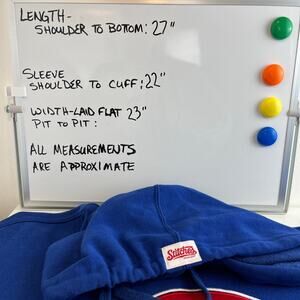 LENGTH-
SHOULDER TO BOTTOM: 27"
SLEEVE
SHOULDER TO CUFF: 22"
WIDTH-LAID FLAT 23"
PIT TO PIT:
ALL MEASUREMENTS
ARE APPROXIMATE
Stitches